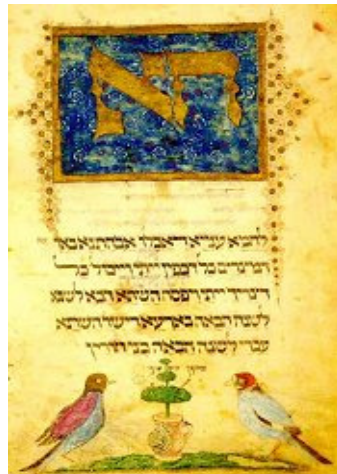 הא
לחמא עניא די אכלו אבהתנא באר
דמצרים כל דכפין ייתי וייכול כל
דצריך ייתי ויפסח השתא הכא לשנ
לשנה הבאה בארעא דישראל השתא
עבדי לשנה הבאה בני חורין